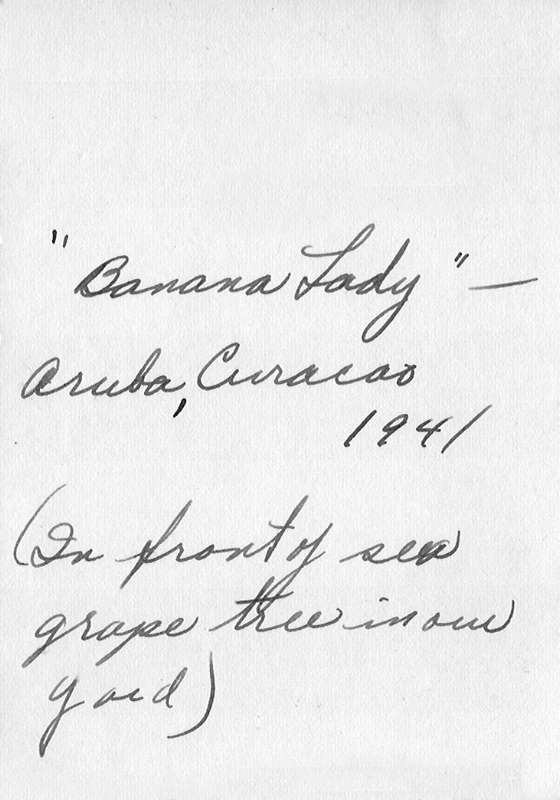 "Banana Lady" —
Aruba, Curacao
1941
(In front of sea
grape tree in our
yard)